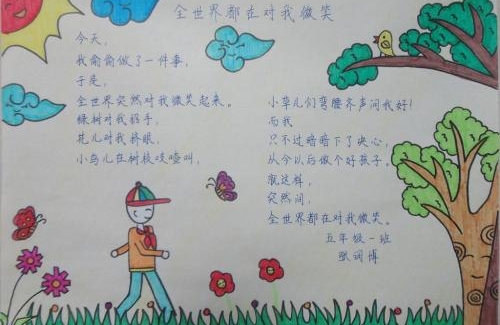 全世界都在对我微笑
今天，
我偷偷做了一件事，
于是，
全世界突然对我微笑起来。
绿树对我招手，
花儿对我挤眼，
小鸟儿在树枝吱喳叫，
小草儿们弯腰齐声问我好！
而我
只不过暗暗下了决心，
从今以后做个好孩子。
就这样，
突然间，
全世界都在对我微笑。
五年级一班